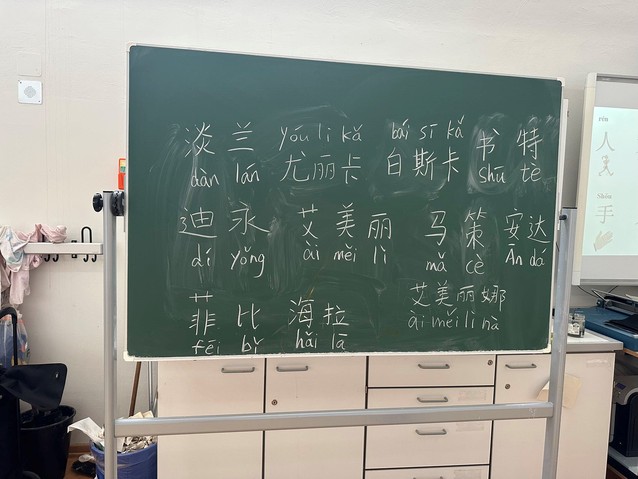 淡 兰 yóu li kǎ bái sī kǎ 书 特
dàn lán 尤丽卡 白斯卡 shū tè
迪 永 艾 美 丽 马 策 安达
dí yǒng ài měi lì mǎ cè Ān dá
菲 比 海拉 艾美丽娜
fēi bǐ hǎi lā ài měi lì nà
rén
人
Shǒu
手